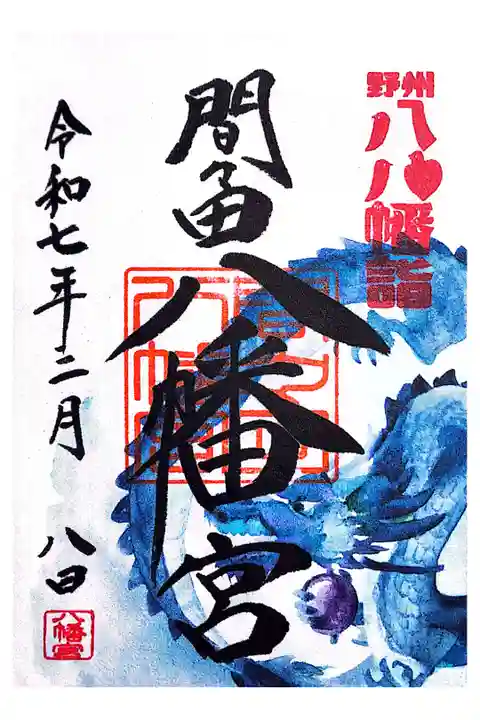 野州
八八幡詣
間々田八幡宮
令和七年二月八日
八幡宮